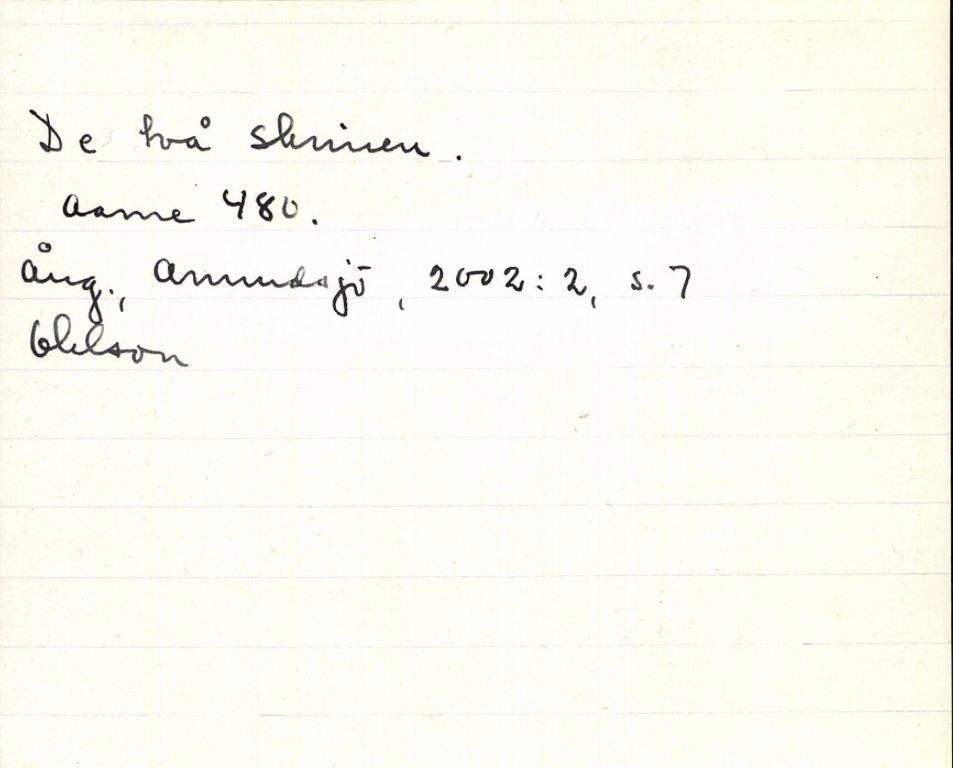 De två skrinen.
Aarne 480.
Ång., Anundsjö, 2002:2, s. 7
Ohlson